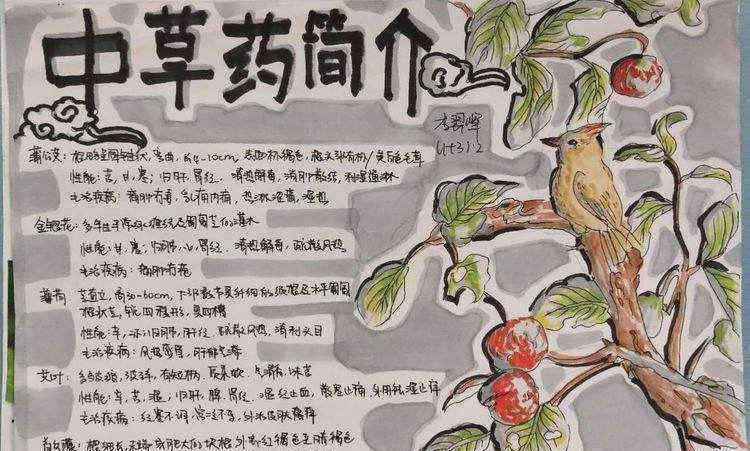 中草药简介
蒲公英：根略呈圆锥状，弯曲，长4-10cm，表面棕褐色，根头部有棕/黄白色毛茸
性能：苦，甘，寒，归肝，胃经，清热解毒，消肿散结，利湿通淋
主治疾病：痈肿疔毒，乳痈内痈，热淋湿黄，湿热
金银花：多年生半常绿缠绕及匍匐茎的灌木
性能：甘，寒，归肺，心，胃经，清热解毒，疏散风热
主治疾病：痈肿疔疮
薄荷：茎直立，高30-60cm，下部数节具纤细的须根及水平匍匐
根状茎，锐四棱形，具四槽
性能：辛，凉，归肺，肝经，疏散风热，清利头目
主治疾病：风热
艾叶：多皱缩，破碎，有短柄，质柔软，气清香，味苦
性能：辛，苦，温，归肝，脾，肾经，温经止血，散寒止痛，外用祛湿止痒
主治疾病：经寒不调，宫冷不孕，外治皮肤瘙痒
根细长，末端成肥大的块根，外表红褐色至暗褐色